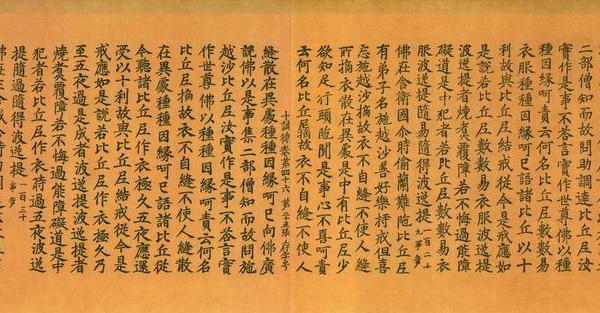 二部僧知而故問助調達比丘尼汝
實作是事不答言實作世尊佛以種
種因緣呵責云何名比丘尼數數易
衣服種種因緣呵已語諸比丘以十
利故與比丘尼結戒從今是戒應如
是說若比丘尼數數易衣服波逸提
波逸提者燒煮覆障若不悔過能障
礙道是中犯者若比丘尼數數易衣
服波逸提隨易隨得波逸提一百二十九事竟
佛在舍衛國尒時偷蘭難陁比丘尼
有弟子名施越沙善好樂持戒但喜
忘施越沙擿故衣不自縫不使人縫
所擿衣散在異處是中有比丘尼少
欲知足行頭陁聞是事心不喜呵責
云何名比丘尼擿故衣不自縫不使人
十誦律卷第四十六 第二十五張 存字号
縫散在異處種種因緣呵已向佛廣
說佛以是事集二部僧知而故問施
越沙比丘尼汝實作是事不答言實
作世尊佛以種種因緣呵責云何名
比丘尼擿故衣不自縫不使人縫散
在異處種種因緣呵已語諸比丘從
今聽諸比丘尼作衣極久五夜應還
受以十利故與比丘尼結戒從今是
戒應如是說若比丘尼作衣極久乃
至五夜過是成者波逸提波逸提者
燒煮覆障若不悔過能障礙道是中
犯者若比丘尼作衣時過五夜波逸
提隨過隨得波逸提一百三十事竟